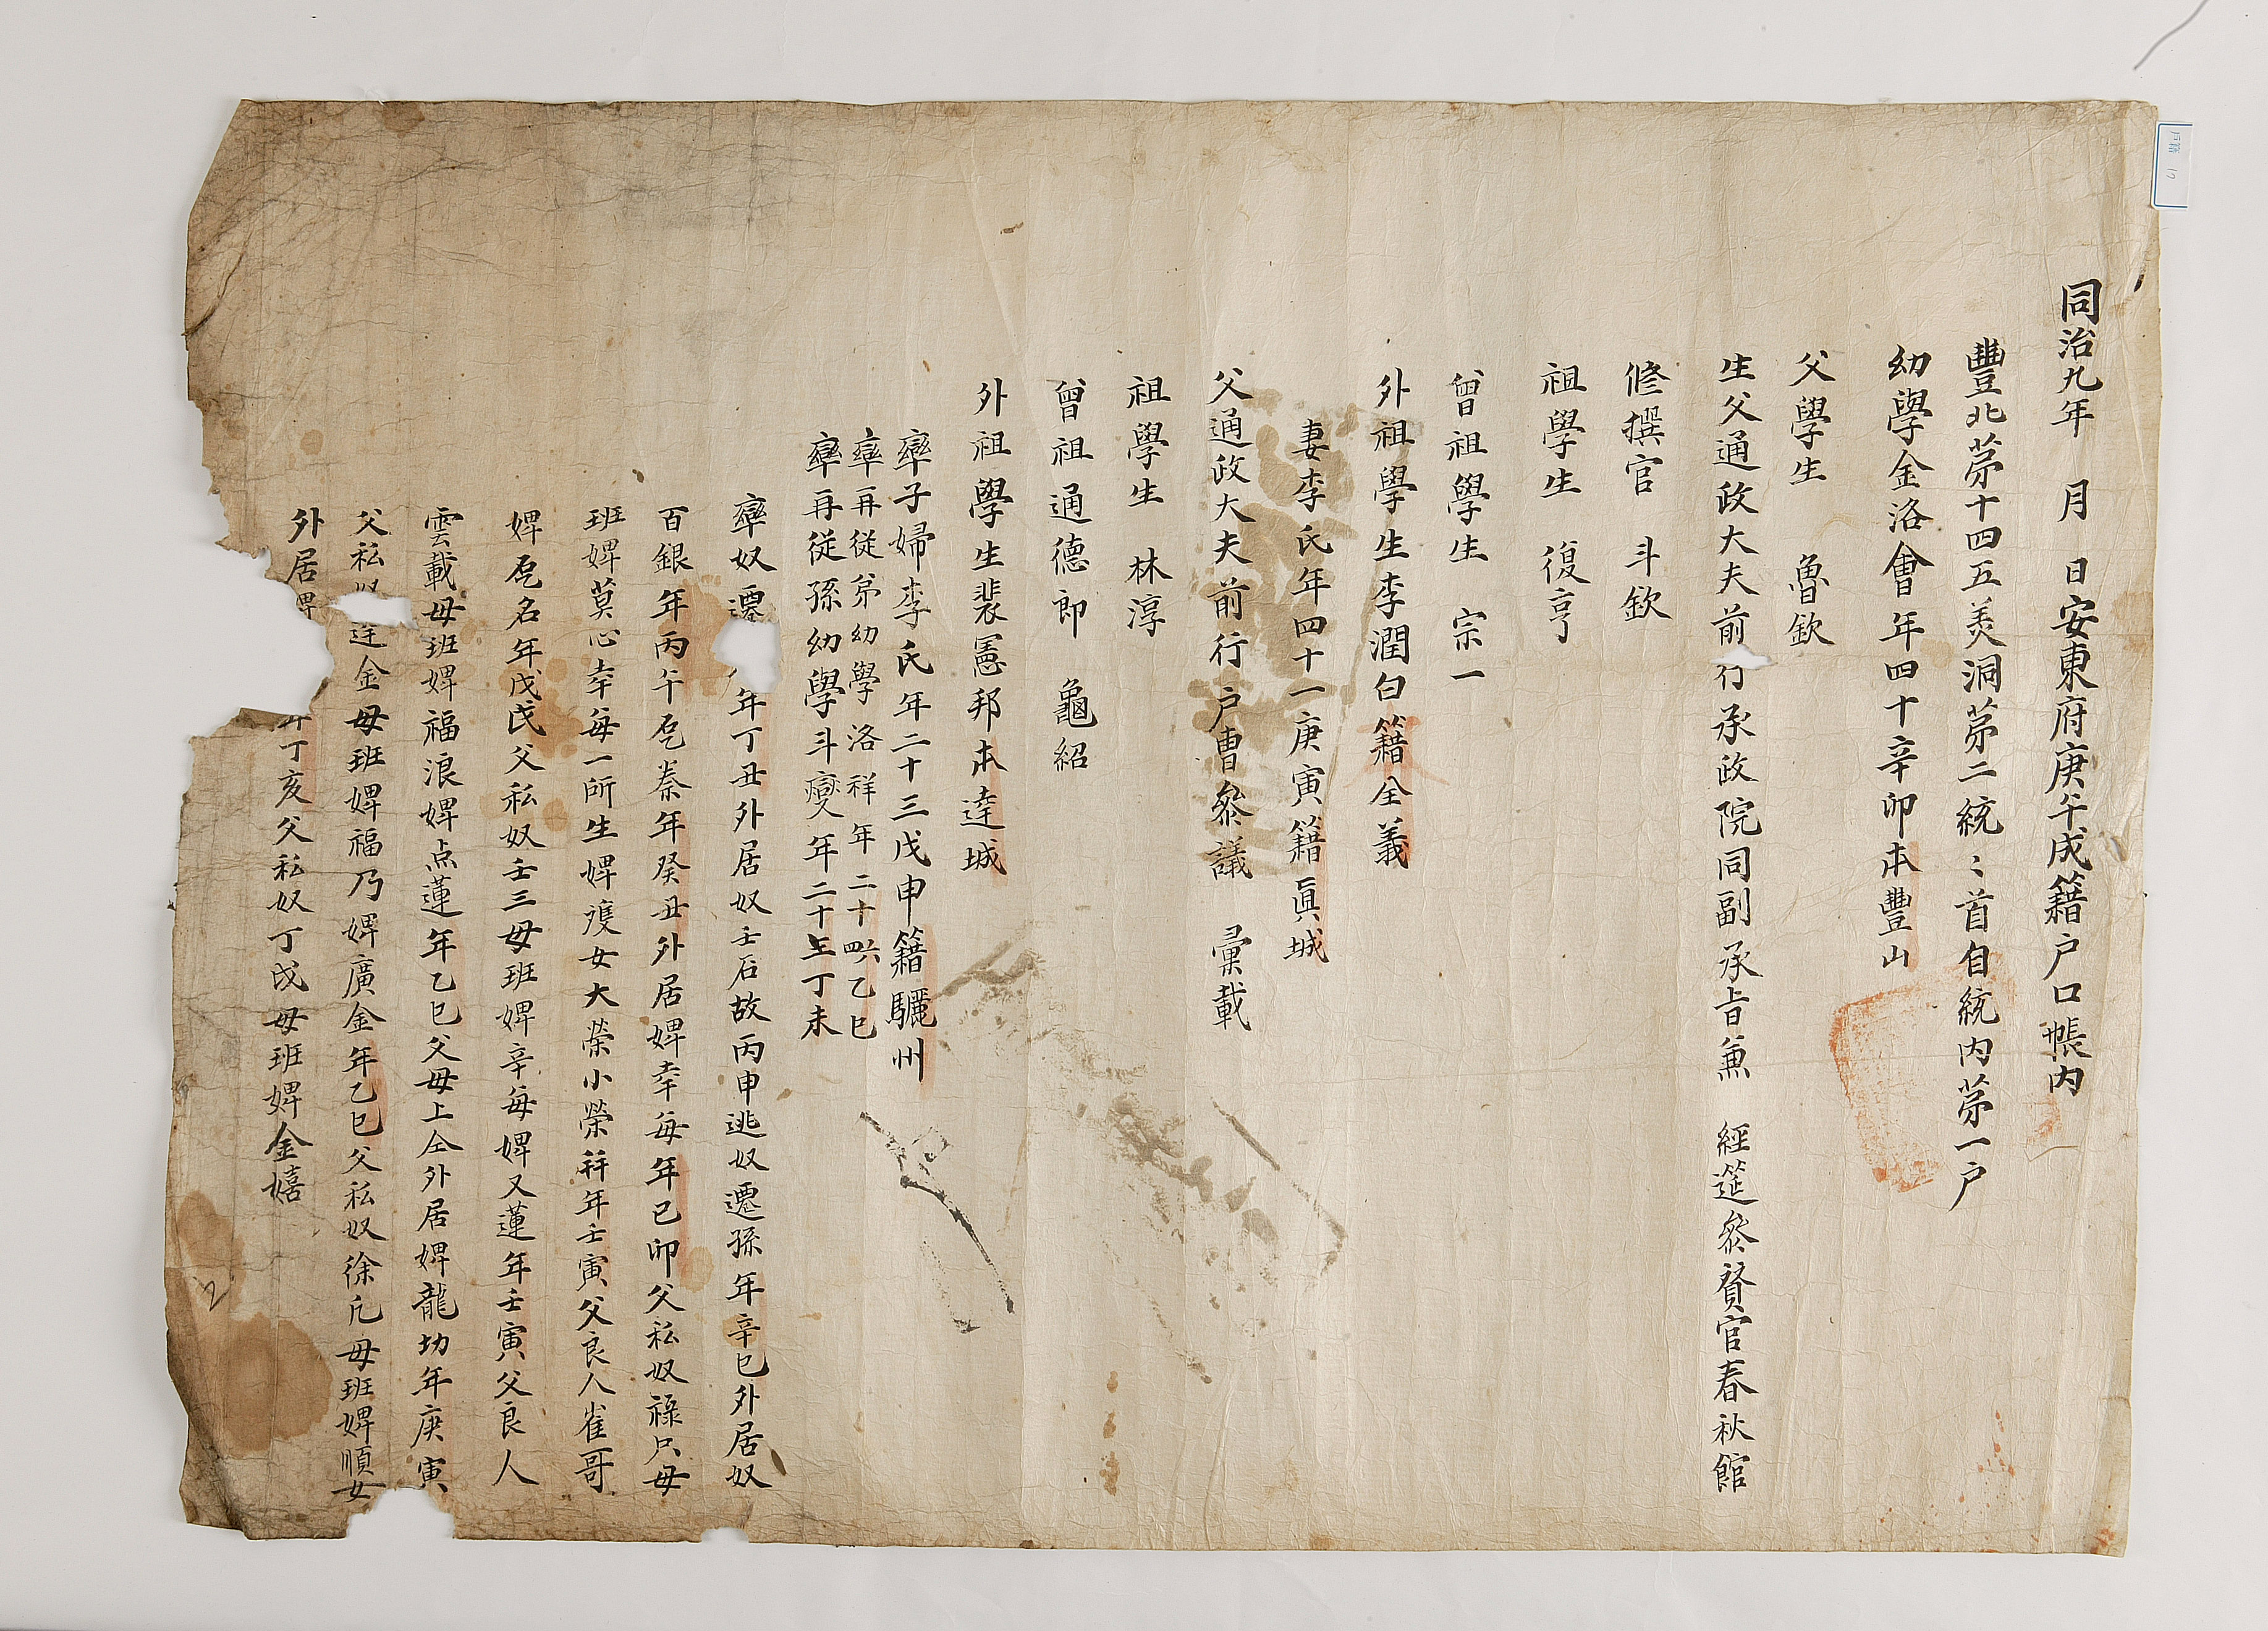 同治九年 月 日安東府庚午成籍戶口帳內
豐北苐十四五美洞苐二統〻首自統內苐一戶
幼學金洛會年四十辛卯本豐山
父學生 魯欽
生父通政大夫前行承政院同副承旨兼 經筵參贊官春秋館
修撰官 斗欽
祖學生 復亨
曾祖學生 宗一
外祖學生李潤白籍全義
妻李氏年四十一庚寅籍眞城
父通政大夫前行戶曹參議 彙載
祖學生 林淳
曾祖通德郎 龜紹
外祖學生裴憲邦本達城
率子婦李氏年二十三戊申籍驪州
率再從弟幼學洛祥年二十六乙巳
率再從孫幼學斗燮年二十四丁未
率奴還 年丁丑外居奴壬石故丙申逃奴還孫年辛巳外居奴
百銀年丙午㐗泰年癸丑外居婢幸每年己卯父私奴祿只母
班婢莫心幸每一所生婢復女大荣小榮并年壬寅父良人雀哥
婢㐗名年戊戌父私奴壬三母班婢辛每婢又蓮年壬寅父良人
雲載母班婢福浪婢点蓮年乙巳父母上仝外居婢龍切年庚寅
父私奴 金母班婢福乃婢廣金年乙巳父私奴徐凡母班婢順女
外居婢 年丁亥父私奴丁戌母班婢金嬉
戶籍 17
2